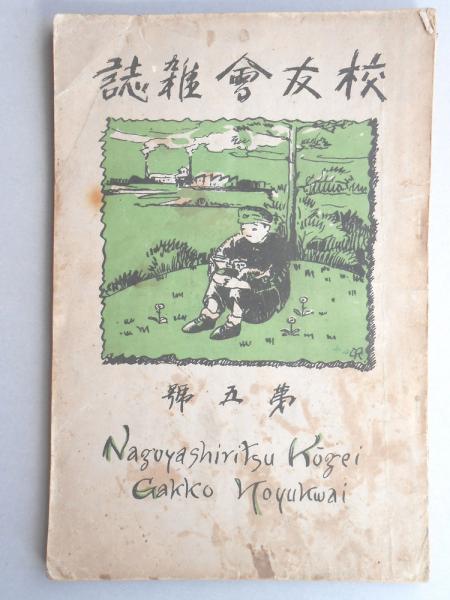 校友會雜誌
第五號
Nagoyashiritsu Kōgei
Gakko Koyukwai